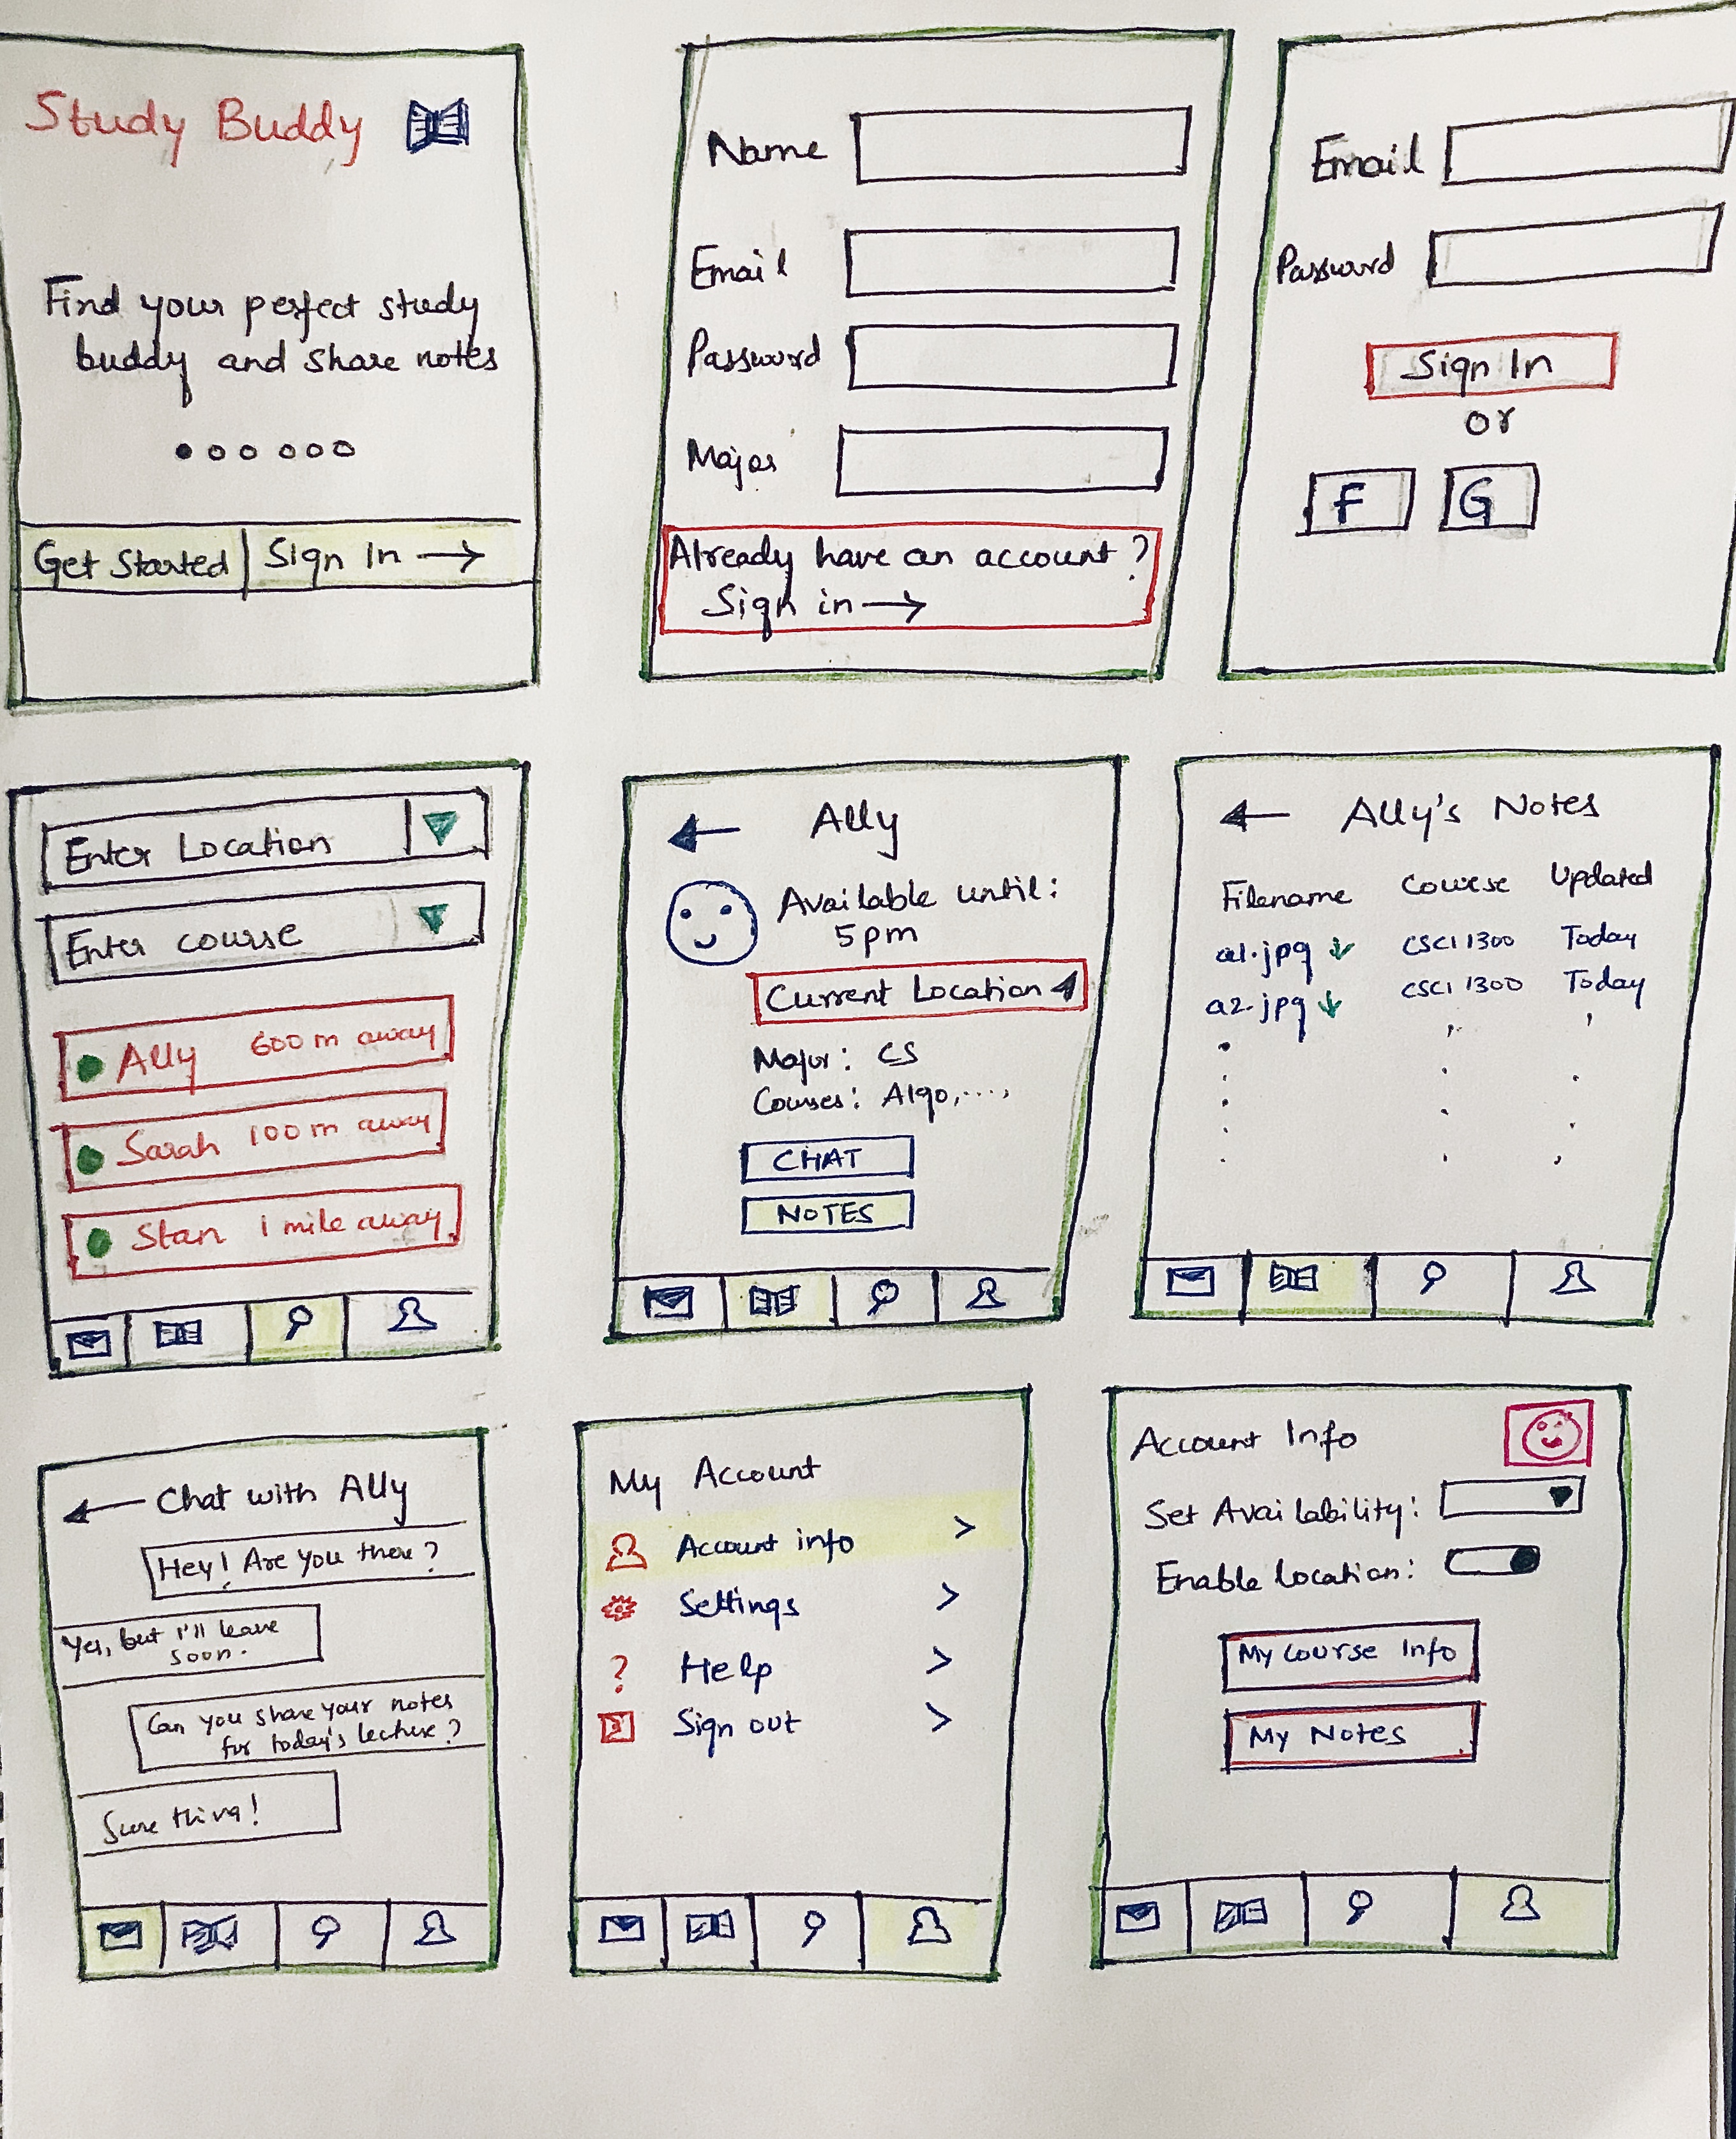 Study Buddy
Find your perfect study
buddy and share notes
Get Started
Sign In →
Name
Email
Password
Major
Already have an account?
Sign in →
Email
Password
Sign In
or
F
G
Enter Location
Enter course
Ally 600 m away
Sarah 100 m away
Stan 1 mile away
← Ally
Available until:
5pm
Current Location
Major: CS
Courses: Algo,....,
CHAT
NOTES
← Ally's Notes
Filename Course Updated
a1.jpg ↓ CSCI 1300 Today
a2.jpg ↓ CSCI 1300 Today
← Chat with Ally
Hey! Are you there?
Yes, but I'll leave
soon.
Can you share your notes
for today's lecture?
Sure thing!
My Account
Account info >
Settings >
? Help >
Sign out >
Account Info
Set Availability:
Enable location:
My Course Info
My Notes